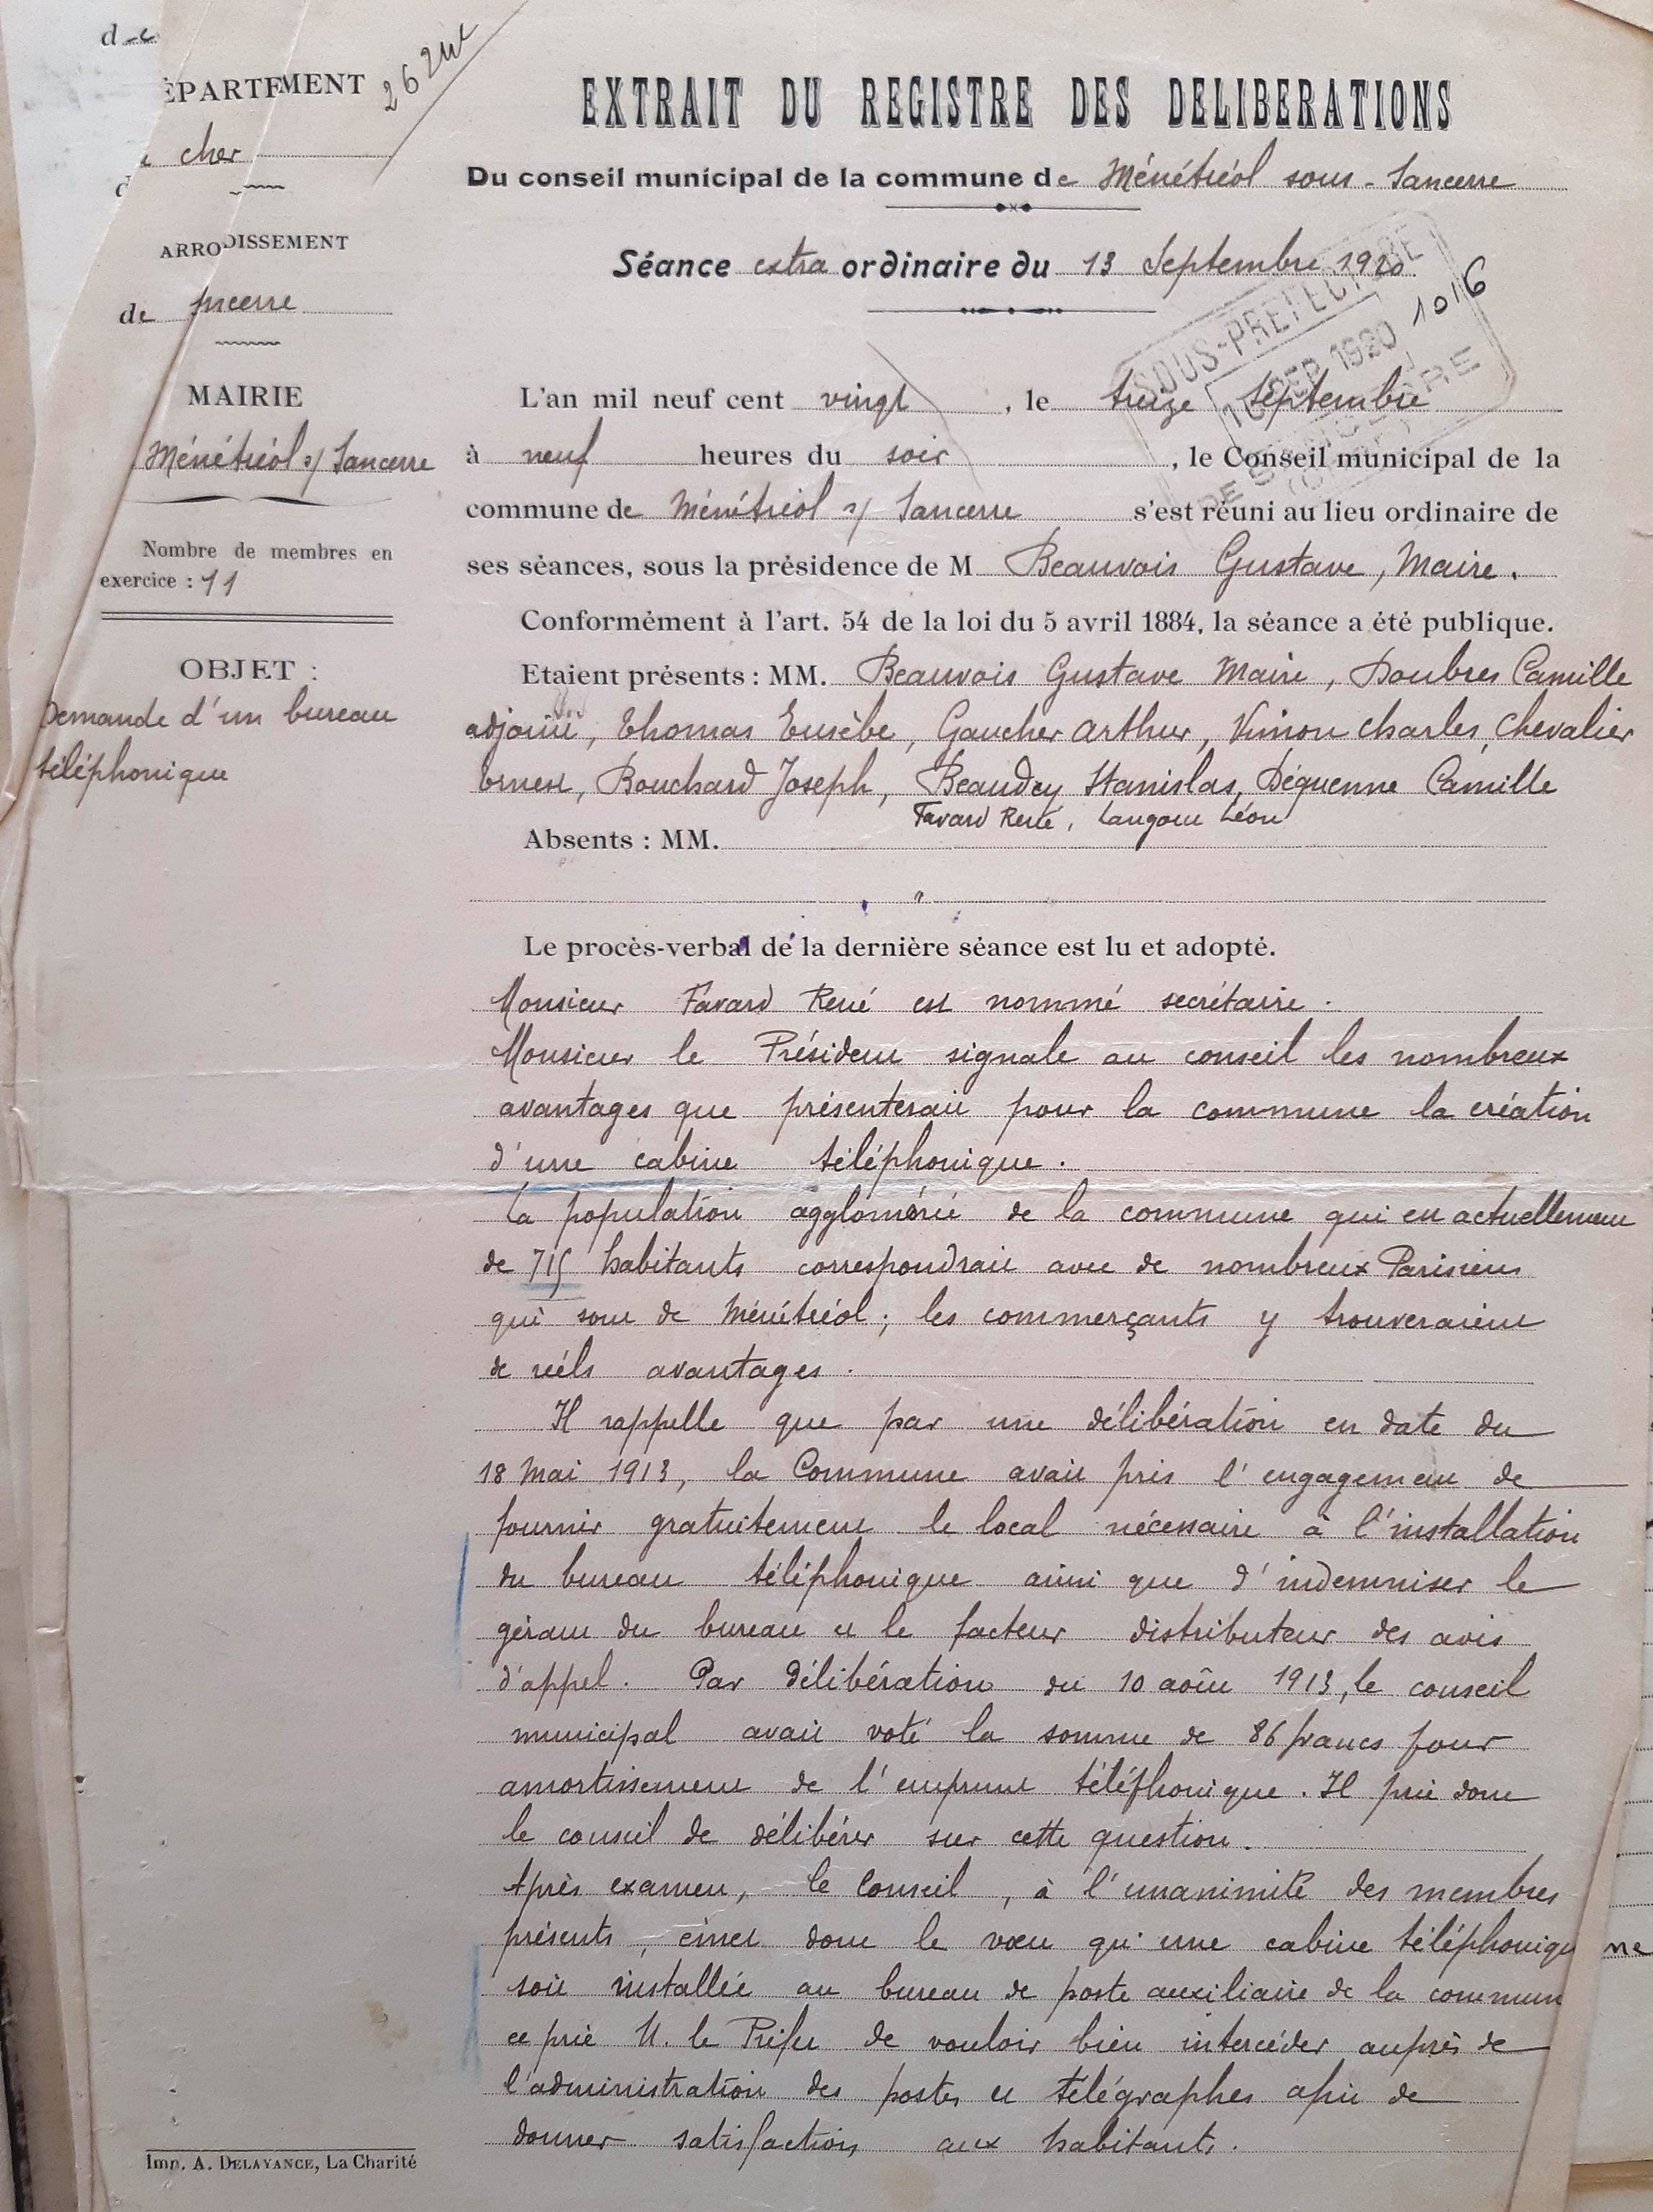 de
DÉPARTEMENT
du cher
26 2W
ARRONDISSEMENT
de Sancerre
MAIRIE
Ménétréol s/ Sancerre
Nombre de membres en
exercice : 11
OBJET :
Demande d'un bureau
téléphonique
EXTRAIT DU REGISTRE DES DELIBERATIONS
Du conseil municipal de la commune de Ménétréol sous-Sancerre
Séance extra ordinaire du 13 Septembre 1920
1016
SOUS-PREFECTURE
SEP 1920
DE SANCERRE
L'an mil neuf cent vingt, le treize Septembre
à neuf heures du soir, le Conseil municipal de la
commune de Ménétréol s/ Sancerre s'est réuni au lieu ordinaire de
ses séances, sous la présidence de M Beauvois Gustave, Maire.
Conformément à l'art. 54 de la loi du 5 avril 1884, la séance a été publique.
Etaient présents : MM. Beauvois Gustave Maire, Doubres Camille
adjoint, Thomas Eusèbe, Gaucher Arthur, Vinson Charles, Chevalier
Ernest, Bouchard Joseph, Beaudry Stanislas, Déquenne Camille
Favard René, Langou Léon
Absents : MM.
"
Le procès-verbal de la dernière séance est lu et adopté.
Monsieur Favard René est nommé secrétaire.
Monsieur le Président signale au conseil les nombreux
avantages que présenterait pour la commune la création
d'une cabine téléphonique.
La population agglomérée de la commune qui est actuellement
de 715 habitants correspondrait avec de nombreux Parisiens
qui sont de Ménétréol ; les commerçants y trouveraient
de réels avantages.
Il rappelle que par une délibération en date du
18 Mai 1913, la Commune avait pris l'engagement de
fournir gratuitement le local nécessaire à l'installation
du bureau téléphonique ainsi que d'indemniser le
gérant du bureau et le facteur distributeur des avis
d'appel. Par délibération du 10 août 1913, le conseil
municipal avait voté la somme de 86 francs pour
amortissement de l'emprunt téléphonique. Il prie donc
le conseil de délibérer sur cette question.
Après examen, le Conseil, à l'unanimité des membres
présents, émet donc le vœu qu'une cabine téléphonique
soit installée au bureau de poste auxiliaire de la commun
et prie M. le Préfet de vouloir bien intercéder auprès de
l'administration des postes et télégraphes afin de
donner satisfaction aux habitants.
Imp. A. DELAYANCE, La Charité